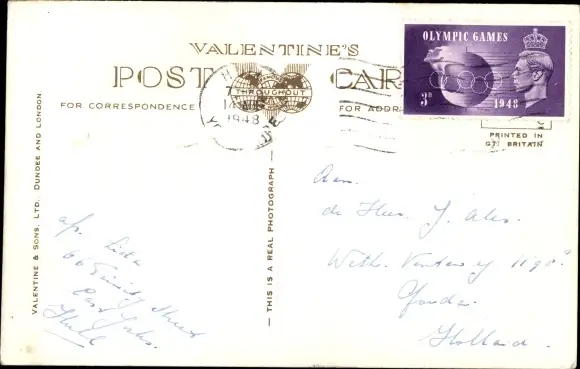 VALENTINE'S
POST CARD
THROUGHOUT
FOR CORRESPONDENCE
FOR ADDR
1948
OLYMPIC GAMES
3D 1948
PRINTED IN
GT. BRITAIN
VALENTINE & SONS, LTD. DUNDEE AND LONDON
— THIS IS A REAL PHOTOGRAPH —
Aan.
de Heer J.
Gouda.
Holland.
66 Trinity Street
East Yorks.
Hull